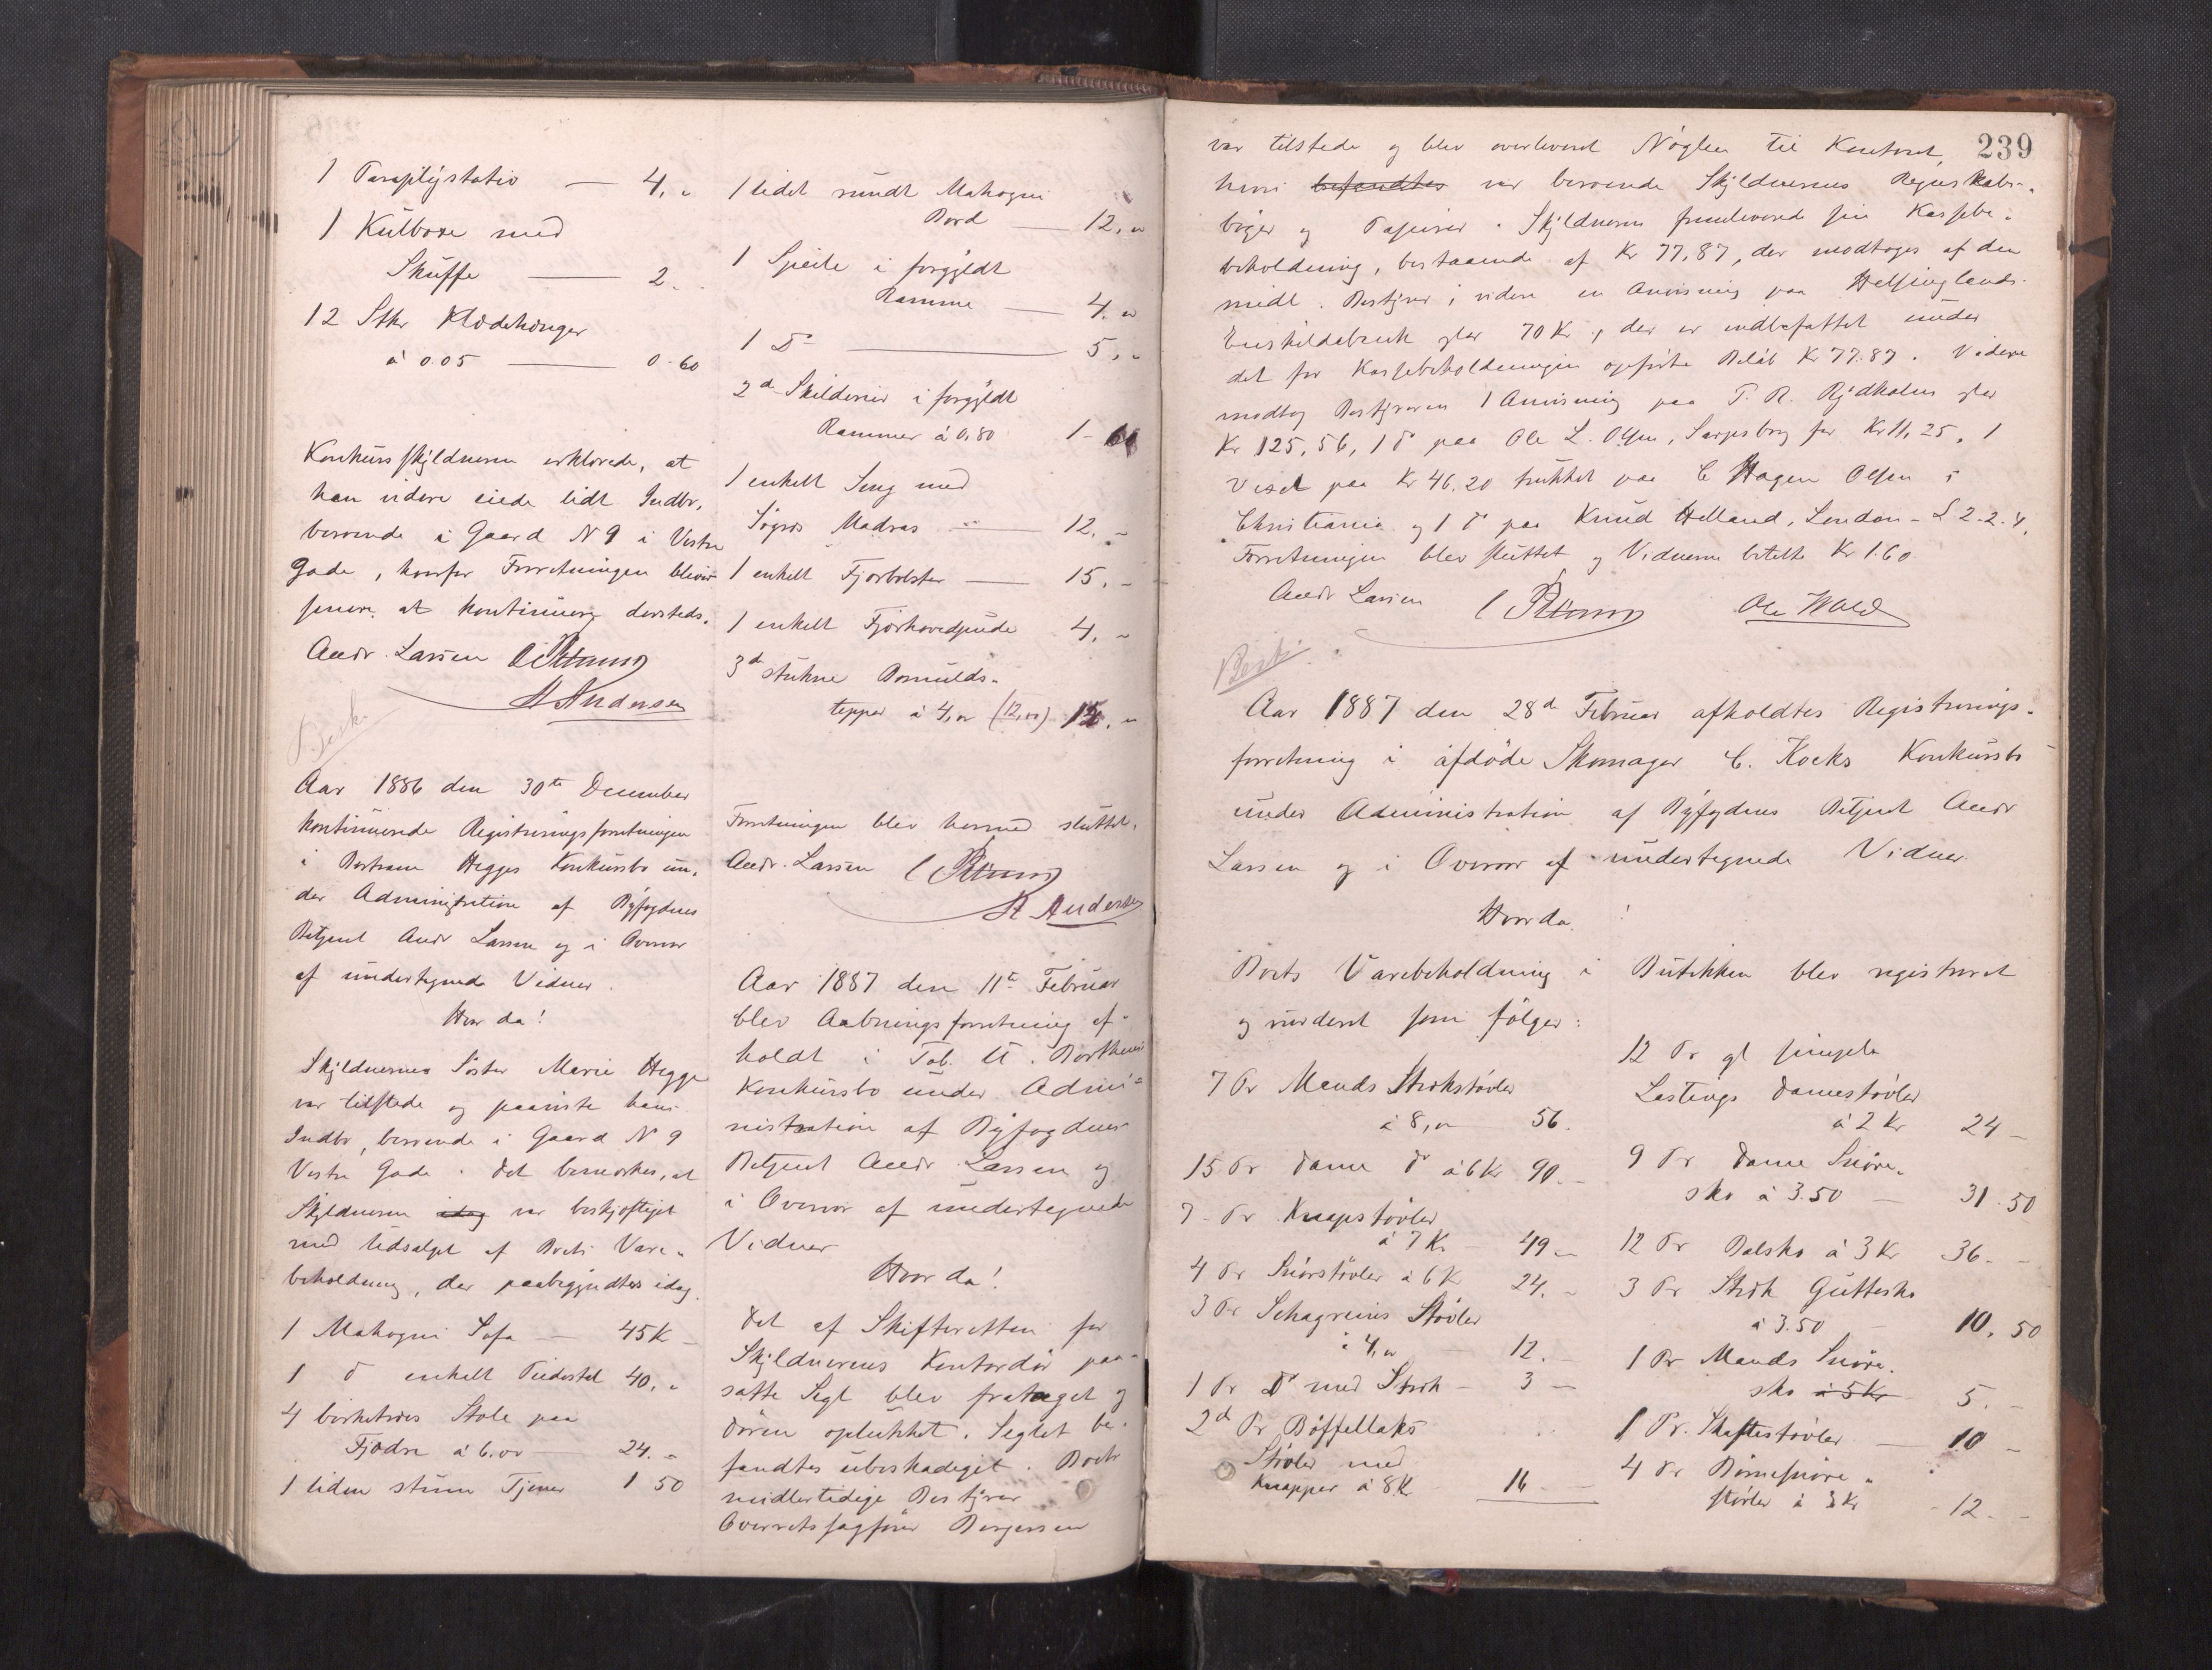 1 Paraplystativ — 4. „
1 Kulboxe med
Skuffe — 2. „
12 Stkr Klædehænger
à 0.05 — 0.60
Konkursskyldneren erklærede, at
han videre eiede lidt Indbo,
beroende i Gaard N 9 i Vestre
Gade, hvorfor Forretningen bliver
senere at kontinuere dersteds.
Andr. Larsen
A Andersen
Besk.
Aar 1886 den 30te December
kontinuerede Registreringsforretningen
i Bertram Hegges Konkursbo un-
der Administration af Byfogdens
Betjent Andr Larsen og i Overvær
af undertegnede Vidner.
Hvor da!
Skyldnerens Søster Marie Hegge
var tilstede og paaviste hans
Indbo, beroende i Gaard N 9
Vestre Gade. Det bemærkes, at
Skyldneren idag var beskjæftiget
med Udsalget af Boets Vare-
beholdning, der paabegyndtes idag.
1 Mahogni Sofa — 45 K –
1 do enkelt Piedestal 40. „
4 birketræes Stole paa
Fjædre à 6.00 — 24. „
1 liden stum Tjener 1 50
1 lidet rundt Mahogni
Bord — 12. „
1 Speile i forgyldt
Ramme — 4. „
1 Do — 5. „
2de Skilderier i forgyldt
Rammer à 0.80 1-60
1 enkelt Seng med
Madras — 12. „
1 enkelt Fjærbolster — 15. „
1 enkelt Fjærhovedpude 4. „
3de stukne Bomulds-
tepper à 4,00 (12,00) 12. „
Forretningen blev hermed sluttet.
Andr. Larsen
A Andersen
Aar 1887 den 11te Februar
blev Aabningsforretning af-
holdt i Tob. U. Borthens
Konkursbo under Admi-
nistration af Byfogdens
Betjent Andr. Larsen og
i Overvær af undertegnede
Vidner
Hvor da!
Det af Skifteretten for
Skyldnerens Kontordør paa-
satte Segl blev frataget og
Døren oplukket. Seglet be-
fandtes ubeskadiget. Boets
midlertidige Bestyrer
Overretssagfører Borgersen
239
var tilstede og blev overleveret Nøglen til Kontoret,
hvori befandtes var beroende Skyldnerens Regnskabs-
bøger og Papirer. Skyldneren fremleverede sin Kassebe-
beholdning, bestaaende af Kr 77,87, der modtoges af den
midl. Bestyrer, videre en Anvisning paa Helsinglands
Enskildabank stor 70 Kr, der er indbefattet under
det for Kassebeholdningen opførte Beløb Kr 77.87. Videre
modtog Bestyreren 1 Anvisning paa P. R. Rydholm stor
Kr 125,56, 1 do paa Ole L. Olsen, Sarpsborg for Kr 11,25, 1
Vexel paa Kr 46.20 trukket paa C Hagen Olsen i
Christiania og 1 do paa Knud Helland, London – £ 2.2.4.
Forretningen blev sluttet og Vidnerne betalte Kr 1.60.
Andr Larsen Ole Wold
Besk.
Aar 1887 den 28de Februar afholdtes Registrerings-
forretning i afdøde Skomager C. Kocks Konkursbo
under Administration af Byfogdens Betjent Andr
Larsen og i Overvær af undertegnede Vidner.
Hvor da!
Boets Varebeholdning i Butikken blev registreret
og vurderet som følger:
7 Pr Mands Strikstøvler
à 8,00 56.
15 Pr Dame do à 6 Kr 90. –
7 – Pr Knapstøvler
à 7 K. 49 –
4 Pr Snørstøvler à 6 K 24. –
3 Pr Schagreins Støvler
à 4,00 – 12. –
1 Pr Do med Strik – 3 –
2de Pr Bøffellaks
Støvler med
Knapper à 8 K 16 –
12 Pr gl simple
Lastings Damestøvler
à 2 Kr 24 –
9 Pr Dame Snøre-
sko à 3.50 – 31.50
12 Pr Balsko à 3 Kr 36. –
3 Pr Strik Guttesko
à 3.50 – 10,50
1 Pr Mands Snøre-
sko à 5 Kr 5. –
1 Pr. Skaftestøvler — 10 –
4 Pr Børnesnøre-
støvler à 3 Kr – 12. –